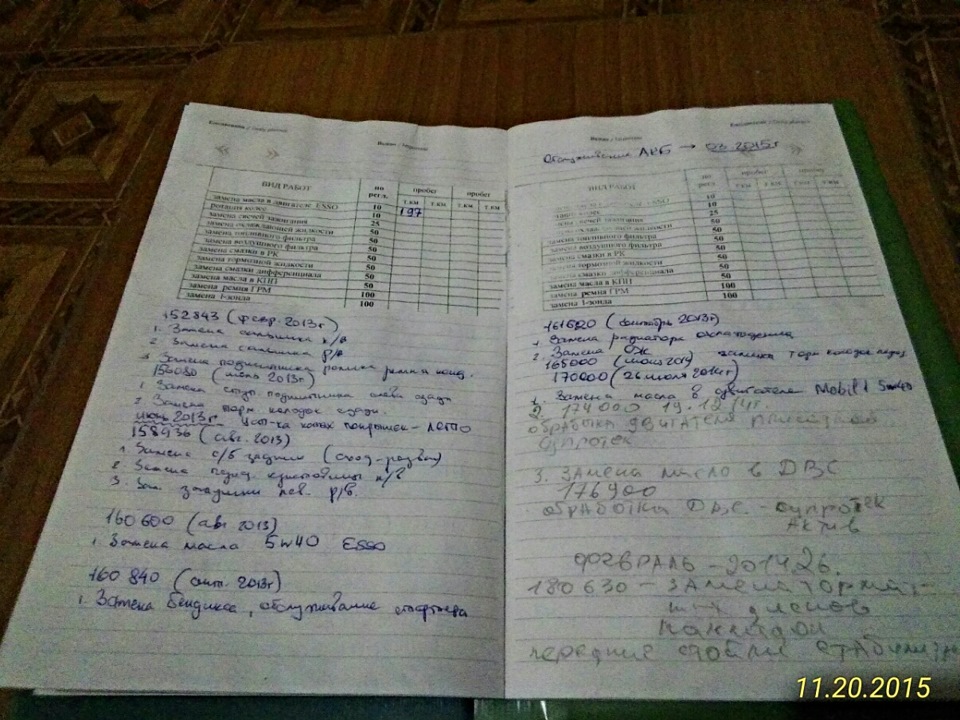 Ежедневник
ВИД РАБОТ по регл. пробег пробег
т.км т.км т.км т.км
замена масла в двигателе ESSO 10 197
ротация колес 10
замена свечей зажигания 25
замена охлаждающей жидкости 50
замена топливного фильтра 50
замена воздушного фильтра 50
замена смазки в РК 50
замена тормозной жидкости 50
замена смазки дифференциала 50
замена масла в КПП 50
замена ремня ГРМ 100
замена l-зонда 100
152843 (февр. 2013г)
1. Замена сальника к/в
2. Замена сальника р/в
3. Замена подшипника ролика ремня конд.
156080 (июнь 2013г)
1. Замена ступ. подшипника слева сзади
2. Замена торм колодок сзади.
июнь 2013г. Уст-ка новых покрышек - лето
158436 (авг. 2013)
1. Замена с/б задних (сход-развал)
2. Замена перед. крестовины к/в
3. Зам. заглушки лев. р/в.
160600 (авг 2013)
1. Замена масла 5w40 ESSO
160 840 (сент. 2013г)
1. Замена бендикса, обслуживание стартера
Ежедневник
Обслуживание АКБ → 03.2015г
ВИД РАБОТ по регл. пробег пробег
т.км т.км т.км т.км
ESSO 10
10
замена свечей зажигания 25
жидкости 50
замена топливного фильтра 50
замена воздушного фильтра 50
замена смазки в РК 50
замена тормозной жидкости 50
замена смазки дифференциала 50
замена масла в КПП 50
замена ремня ГРМ 100
замена l-зонда 100
161620 (сентябрь 2013г)
1. Замена радиатора охлаждения
2. Замена ОЖ
165000 замена торм колодок перед.
170000 (26 июля 2014г)
1. Замена масла в двигателе Mobil 1 5w40
2. 174000 19.12.14г.
обработка двигателя присадкой
супротек
3. Замена масло в ДВС
176900
обработка ДВС - супротек
Актив
ФЕВРАЛЬ - 2014
180630 - замена тормаз-
ных дисков
передние стойки
11.20.2015